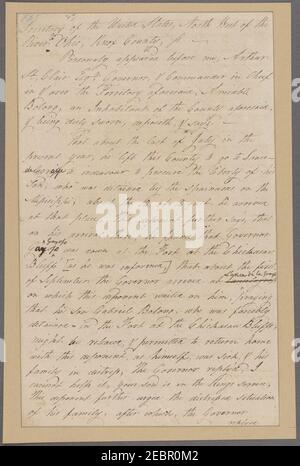 Territory of the United States, North West of the
River Ohio, Knox County, ss.
Personally appeared before me, Arthur
St Clair Esqr. Governor, & Commander in Chief
in & over the Territory aforesaid, Antoine
Bolong, an Inhabitant of the County aforesaid
& being duly sworn, deposeth, & says
That about the last of July in the
present year, he left this County to go to Lance
à la Graisse to endeavour to procure the liberty of his
Son, who was detained by the Spaniards on the
Mississippi; at the
at that place, the deponent further says, that
on his arrival there, he found that Governor
Gayoso
Gayoso was down at the Fort at the Chickasaw
Bluffs [as he was informed,] that about the first
of September the Governor arrived at
on which this deponent waited on him, praying
that his Son Gabriel Bolong, who was forcibly
detained in the Fort at the Chickasaw Bluffs
might be released, & permitted to return home
with this deponent, as himself was sick, & his
family in distress, the Governor replied I
cannot help it, your Son is in the Kings Service,
this deponent further urged the distressed situation
of his family, after which, the Governor
replied
alamy
Image ID: 2EBR0M2
www.alamy.com